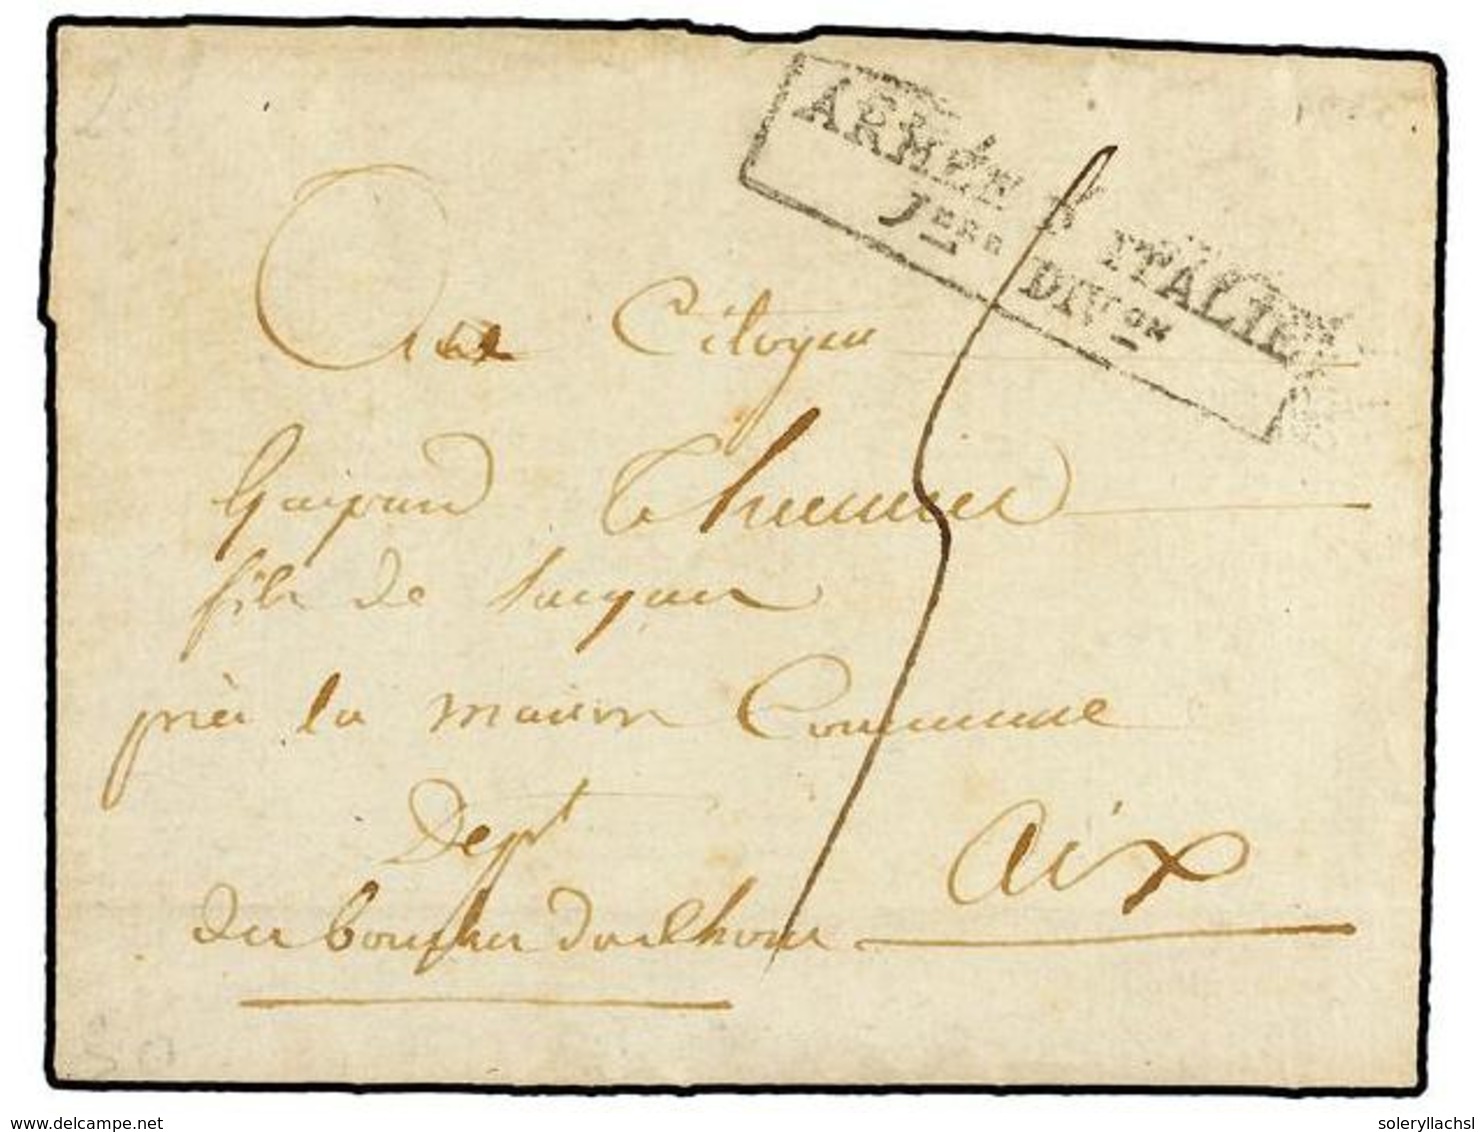 ARMÉE D'ITALIE
1ERE DIVON
Au Citoyen
Gaspard
fils de Jacques
près la maison Commune
Dept Aix
du bouches du Rhone
delcampe.net
soleryllachsl